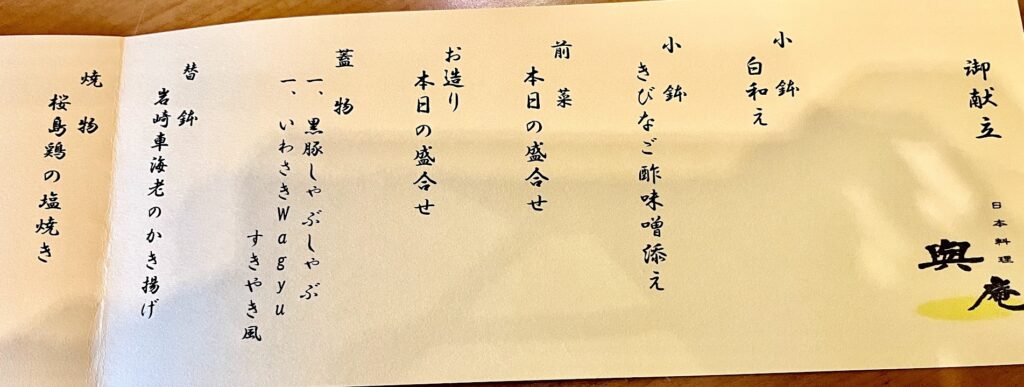 御献立
日本料理
與庵
小鉢
白和え
小鉢
きびなご酢味噌添え
前菜
本日の盛合せ
お造り
本日の盛合せ
蓋物
一、黒豚しゃぶしゃぶ
一、いわさきWagyu
すきやき風
替鉢
岩崎車海老のかき揚げ
焼物
桜島鶏の塩焼き